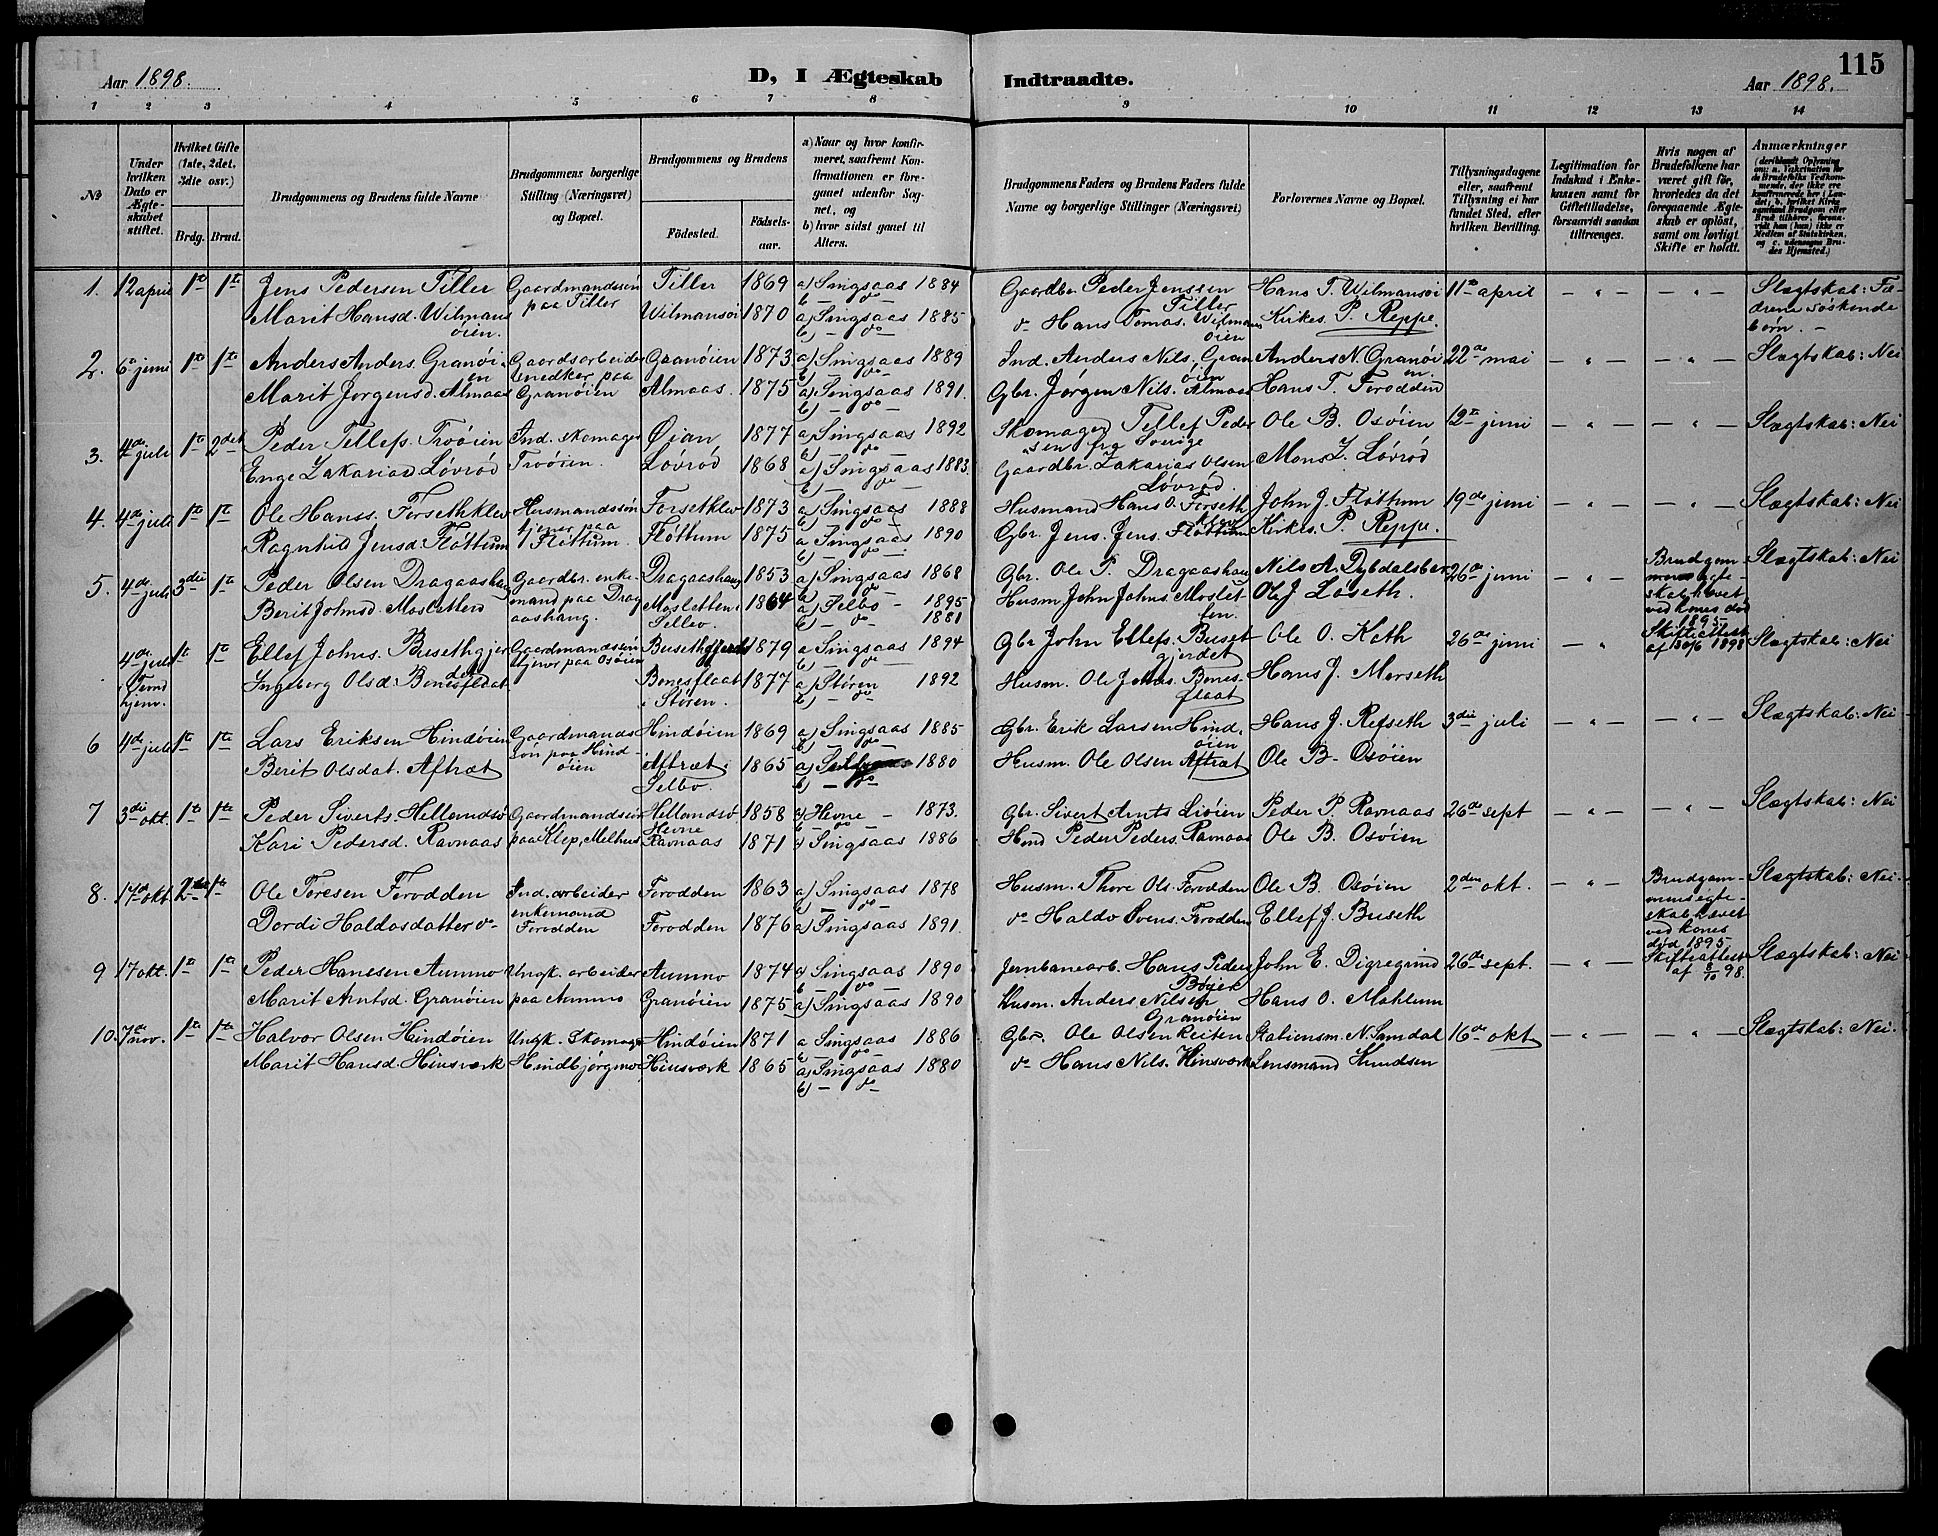 115
Aar 1898.
D, I Ægteskab Indtraadte.
Aar 1898.
1 2 3 4 5 6 7 8 9 10 11 12 13 14
№
Under hvilken Dato er Ægteskabet stiftet.
Hvilket Gifte (1ste, 2det, 3die osv.)
Brdg. Brud.
Brudgommens og Brudens fulde Navne
Brudgommens borgerlige Stilling (Næringsvei) og Bopæl.
Brudgommens og Brudens
Födested.
Födselsaar.
a) Naar og hvor konfirmeret, saafremt Konfirmationen er foregaaet udenfor Sognet, og
b) hvor sidst gaaet til Alters.
Brudgommens Faders og Brudens Faders fulde Navne og borgerlige Stillinger (Næringsvei)
Forlovernes Navne og Bopæl.
Tillysningsdagene eller, saafremt Tillysning ei har fundet Sted, efter hvilken Bevilling.
Legitimation for Indskud i Enkekassen samt for Giftetilladelse, forsaavidt saadan tiltrænges.
Hvis nogen af Brudefolkene har været gift för, hvorledes da det foregaaende Ægteskab er oplöst, samt om lovligt Skifte er holdt.
Anmærkninger
1. 12 april 1ste 1ste Jens Pedersen Tiller Gaardmandssön paa Tiller Tiller 1869 a) Singsaas 1884 b) – do – Gaardbr Peder Jenssen Tiller Hans T. Wilmansöi 11te april – " – – " – Slægtskab: Fædrene Söskende börn. –
Marit Hansd. Wilmansöien. Wilmansöi 1870 a) Singsaas 1885 b) – do – do Hans Tomas. Wilmansöien Kirkes. P. Reppe.
2. 6te juni 1ste 1ste Anders Anders. Granöien Gaardsarbeider snedker paa Granöien Granöien 1873 a) Singsaas 1889 b) – do – Ind. Anders Nils. Granöien Anders N. Granöien 22de mai – " – – " – Slægtskab: Nei
Marit Jörgensd. Almaas Almaas. 1875 a) Singsaas 1891. b) – do – Gbr. Jörgen Nils. Almaas Hans T. Forodden
3. 4de juli 1ste 2det Peder Tellefs. Troöien Ind. skomager Troöien. Öian 1877 a) Singsaas 1892 b) – do – Skomager Tellef Pedersen fra Sverige Ole B. Osöien 12te juni – " – – " – Slægtskab: Nei
Enge Zakariasd Lövröd Lövröd 1868 a) Singsaas 1883. b) – do – Gaardbr. Zakarias Olsen Lövröd Mons Z. Lövröd
4. 4de juli 1ste 1ste Ole Hanss. Forsethklev Husmandssön tjener paa Flöttum. Forsetklev 1873 a) Singsaas 1888 b) – do – Husmand Hans O. Forsethklev John J. Flöttum 19de juni – " – – " – Slægtskab: Nei
Ragnhild Jensd. Flöttum Flöttum 1875 a Singsaas 1890 b) – do – Gbr. Jens. Jens. Flöttum Kirkes. P. Reppe.
5. 4de juli 3die 1ste Peder Olsen Dragaashaug Gaardbr. enkemand paa Dragaashaug. Dragaashaug 1853 a) Singsaas 1868 b) – do – Gbr. Ole P. Dragaashaug Nils A. Dybdalsber 26de juni – " – Brudgommens egteskab hævet ved kones död 1895 Skifteattest af 30/6 1898 Slægtskab: Nei
Berit Johnsd. Mosletten Mosletten i Selbo. 1864 a) Selbo – 1895 b) – do – 1881 Husm John Johns Mosletten Ole J. Löseth.
4de juli i Trondhjem. 1ste 1ste Ellef Johns. Busethgjerdet Gaardmandssön tjener paa Osöien Busethgjerdet 1879 a Singsaas 1894 b) – do – Gbr John Ellefs. Busetgjerdet Ole O. Koth 26de juni – " Slægtskab: Nei
Ingeborg Olsd. Bonesflaat Bonesflaat i Stören. 1877 a) Stören 1892 b) – do – Husm. Ole Johns. Bonesflaat Hans J. Morseth
6 4de juli 1ste 1ste Lars Eriksen Hindöien Gaardmandssön paa Hindöien Hindöien 1869 a) Singsaas 1885 b) – do – Gbr. Erik Larsen Hindöien Hans J. Refseth 3die juli – " – – " – Slægtskab: Nei
Berit Olsdat. Aftræt Aftræt i Selbo. 1865 a) 1880 b) – do – Husm. Ole Olsen Aftræt Ole B. Osöien
7 3die okt. 1ste 1ste Peder Siverts. Hellandsö Gaardmandssön paa Klep, Melhus Hellandsö Hevne 1858 a) Hevne – 1873. b – do – Gbr. Sivert Arnts Liöien Peder P. Ravnaas 26de sept – " – – " – Slægtskab: Nei
Kari Pedersd. Ravnaas Ravnaas 1871 a) Singsaas 1886 Peder Peders. Ravnaas Ole B. Osöien
8. 17de okt. 2det 1ste Ole Toresen Forodden Ind. arbeider enkemand Forodden Forodden 1863 a) Singsaas 1878 b) – do – Husm. Thore Ols. Forodden Ole B. Osöien 2den okt. – " – Brudgommens egteskab hævet ved kones död 1895 Skifteattest af 8/10 98. Slægtskab: Nei.
Dordi Haldosdatter do Forodden 1876 a) Singsaas 1891. do Haldo Svens. Forodden Ellef J. Buseth
9 17 okt. 1ste 1ste Peder Hansen Aunmo Ungk. arbeider paa Aunmo Aunmo 1874 a) Singsaas 1890 b – do – Jernbanearb. Hans Peders John E. Digregrind 26de sept. – " – Slægtskab: Nei
Marit Arntsd. Granöien Granöien 1875 a) Singsaas 1890 Husm. Anders Nilsen Granöien Hans O. Mahlum
10. 7de nov. 1ste 1ste Halvor Olsen Hindöien Ungk. Skomager Hindbjörgmo Hindöien 1871 a Singsaas 1886 b – do – Gbr. Ole Olsen Reiten Stationsm. N. Samdal 16de okt – " – – " – Slægtskab: Nei.
Marit Hansd. Hinsværk Hinsværk 1865 a) Singsaas 1880 b) – do – do Hans Nils. Hinsværk Lensmand Knudsen